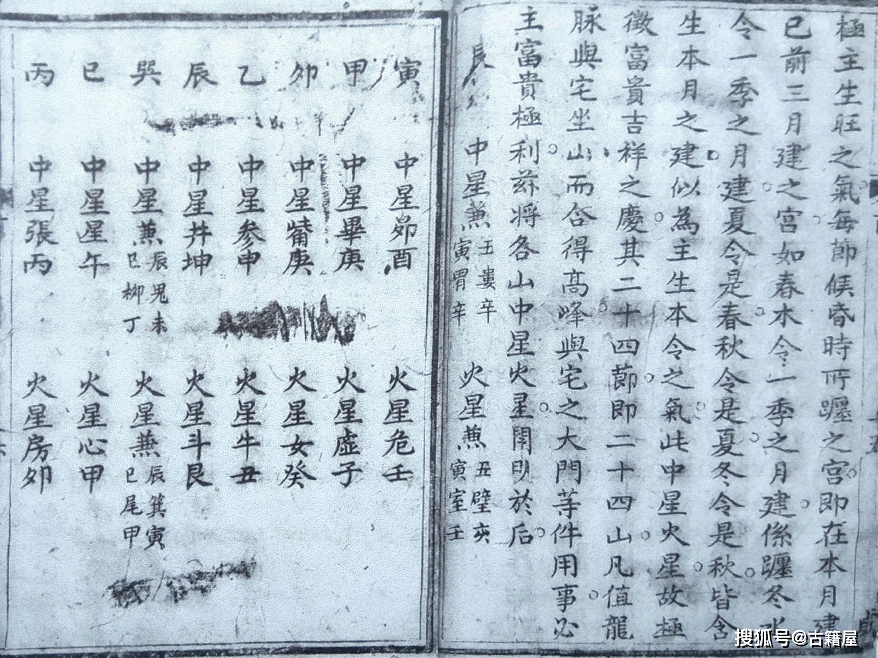 極主生旺之氣每節候昏時所躔之宮即在本月建
已前三月建之宮如春木令一季之月建係躔冬水
令一季之月建夏令是春秋令是夏冬令是秋皆含
生本月之建似為主生本令之氣此中星火星故極
徵富貴吉祥之慶其二十四節即二十四山凡值龍
脉與宅坐山而合得高峰與宅之大門等件用事必
主富貴極利茲將各山中星火星開明於后
艮 中星兼 丑婁辛 寅胃辛 火星兼 丑壁亥 寅室壬
寅 中星昴酉 火星危壬
甲 中星畢庚 火星虛子
卯 中星觜庚 火星女癸
乙 中星参申 火星牛丑
辰 中星井坤 火星斗艮
巽 中星兼 辰鬼未 巳柳丁 火星兼 辰箕寅 巳尾甲
巳 中星星午 火星心甲
丙 中星張丙 火星房卯
搜狐号@古籍屋